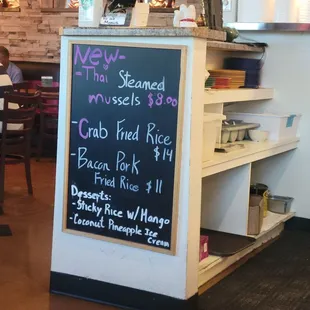 New-
-Thai Steamed
mussels $8.00
-Crab Fried Rice
$14
-Bacon Pork
Fried Rice $11
Desserts:
-Sticky Rice W/Mango
-Coconut Pineapple Ice
Cream